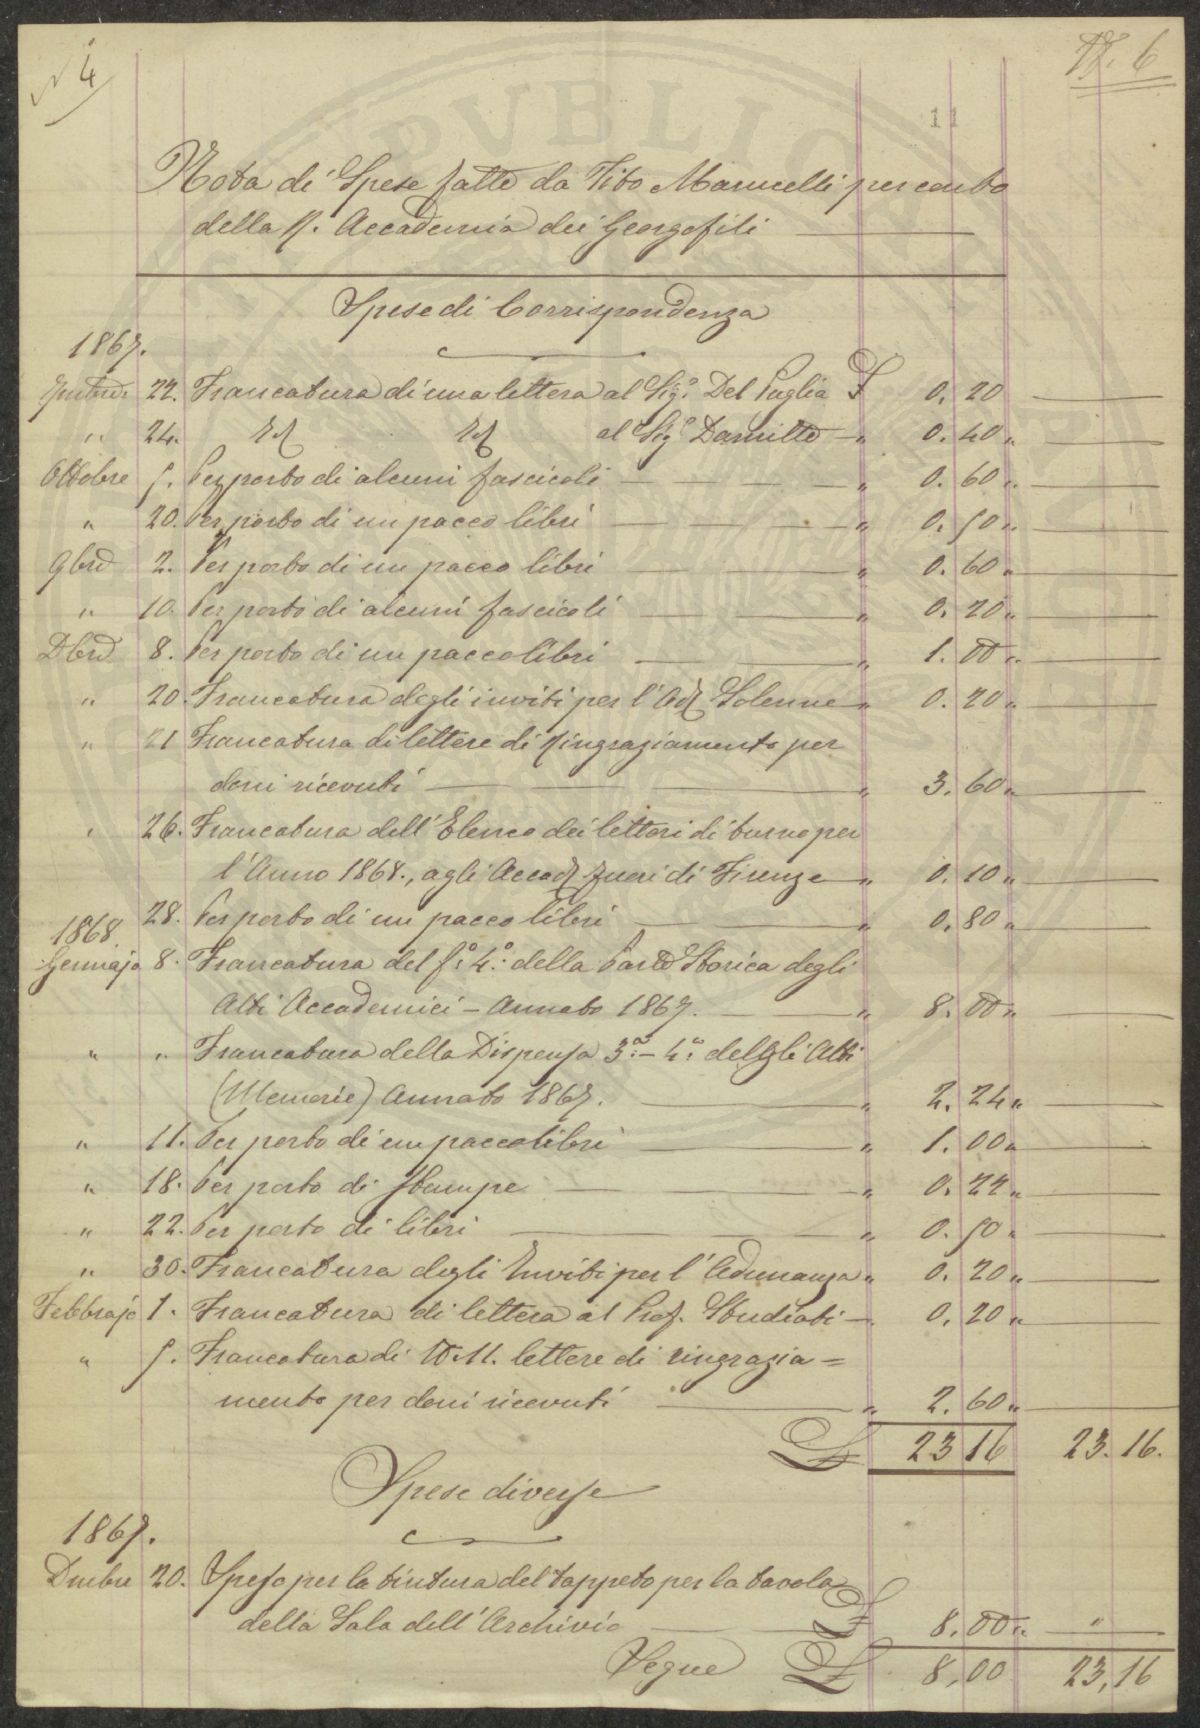 N 4
N. 6
11
PVBLIC
Nota di Spese fatte da Tito Marucelli per conto
della R. Accademia dei Georgofili
Spese di Corrispondenza
1867.
22. Francatura di una lettera al Sig.r Del Puglia £ 0. 20
" 24. Id Id al Sig.r Damitte " 0. 40 "
Ottobre 5. Per porto di alcuni fascicoli " 0. 60 "
" 20. Per porto di un pacco libri " 0. 50 "
9bre 2. Per porto di un pacco libri " 0. 60 "
" 10. Per porto di alcuni fascicoli " 0. 20 "
Dbre 8. Per porto di un pacco libri " 1. 00 "
" 20. Francatura degli inviti per l'Ad Solenne " 0. 20 "
" 21 Francatura di lettere di ringraziamento per
doni ricevuti " 3. 60 "
" 26. Francatura dell'Elenco dei lettori di turno per
l'Anno 1868., agli Accad fuori di Firenze " 0. 10 "
28. Per porto di un pacco libri " 0. 80 "
1868.
Gennajo 8. Francatura del f.o 4.o della Parte Storica degli
Atti Accademici - Annata 1867. " 8. 00 "
" " Francatura della Dispensa 3.a - 4.a degli Atti
(Memorie) Annata 1867. " 2. 24 "
" 11. Per porto di un pacco libri " 1. 00 "
" 18. Per porto di Stampe " 0. 22 "
" 22. Per porto di libri " 0. 50 "
" 30. Francatura degli Inviti per l'Adunanza " 0. 20 "
Febbrajo 1. Francatura di lettera al Prof. Studiati 0. 20 "
" 5. Francatura di N. 11. lettere di ringrazia=
mento per doni ricevuti " 2. 60 "
£ 23 16 23. 16.
Spese diverse
1867.
Dmbre 20. Spesa per la tintura del tappeto per la tavola
della Sala dell'Archivio £ 8. 00 " "
Segue £ 8,00 23,16